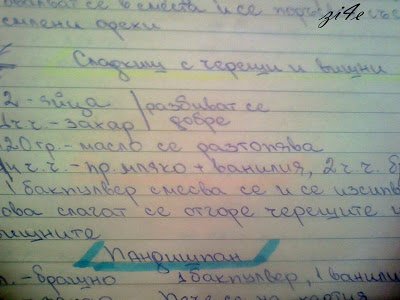 овалват се в сместа и се
смлени орехи
zi4e
Сладкиш с череши и вишни
2 - яйца | разбиват се
1 ч.ч. - захар | добре
120 гр. - масло се разтопява
ч.ч. - пр. мляко + ванилия, 2 ч.ч.
1 бакпулвер смесва се и се изсипв
ова слагат се отгоре черешите и
вишните
Пандишпан
брашно 1 бакпулвер, 1 ванили